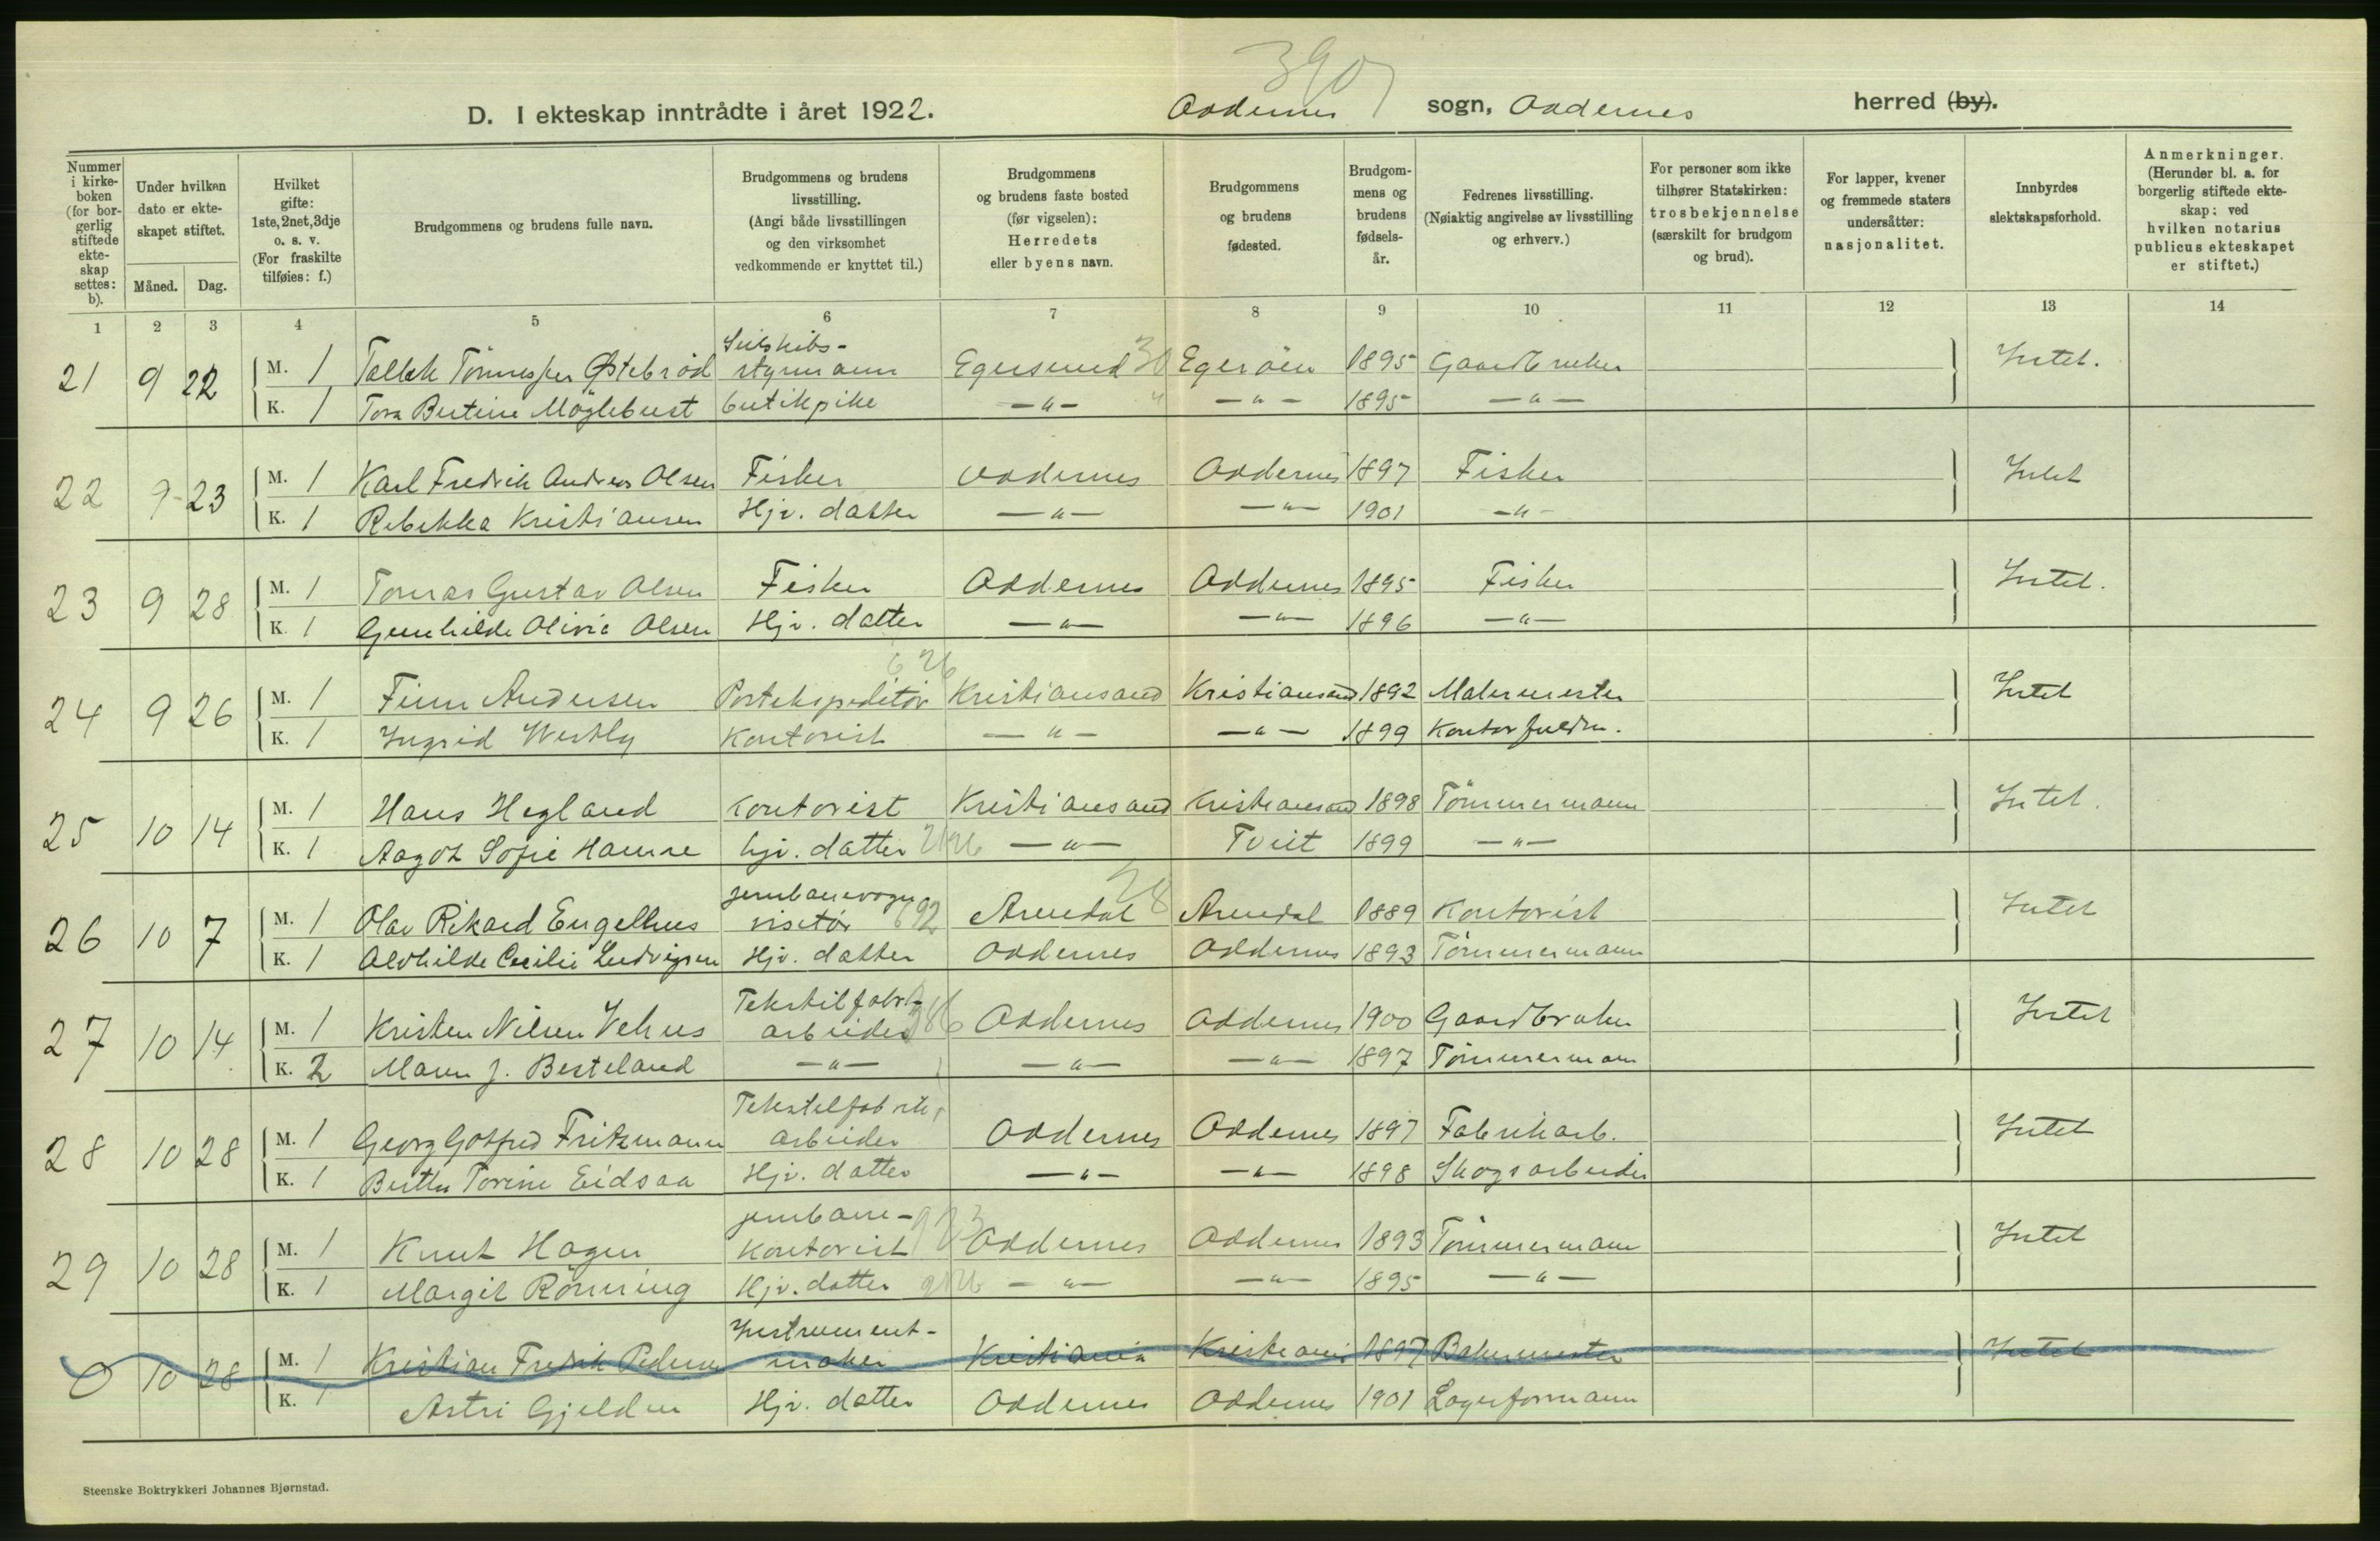 390
D. I ekteskap inntrådte i året 1922. Oddernes sogn, Oddernes herred (by).
Nummer i kirkeboken (for borgerlig stiftede ekteskap settes: b).
Under hvilken dato er ekteskapet stiftet.
Måned. Dag.
Hvilket gifte: 1ste, 2net, 3dje o. s. v. (For fraskilte tilføies: f.)
Brudgommens og brudens fulle navn.
Brudgommens og brudens livsstilling. (Angi både livsstillingen og den virksomhet vedkommende er knyttet til.)
Brudgommens og brudens faste bosted (før vigselen): Herredets eller byens navn.
Brudgommens og brudens fødested.
Brudgommens og brudens fødselsår.
Fedrenes livsstilling. (Nøiaktig angivelse av livsstilling og erhverv.)
For personer som ikke tilhører Statskirken: trosbekjennelse (særskilt for brudgom og brud).
For lapper, kvener og fremmede staters undersåtter: nasjonalitet.
Innbyrdes slektskapsforhold.
Anmerkninger. (Herunder bl. a. for borgerlig stiftede ekteskap: ved hvilken notarius publicus ekteskapet er stiftet.)
1 2 3 4 5 6 7 8 9 10 11 12 13 14
21 9 22 M. 1 Tønnessen Østebrød styrmann Egersund 30 Egerøen 1895 Gaardbruker Intet.
K. 1 Tora Bertine Møglebust butikpike —"— —"— 1895 —"—
22 9 23 M. 1 Karl Fredrik Andreas Olsen Fisker Oddernes Oddernes 1897 Fisker Intet
K. 1 Rebekka Kristiansen Hjv. datter —"— —"— 1901 —"—
23 9 28 M. 1 Tomas Gustav Olsen Fisker Oddernes Oddernes 1895 Fisker Intet.
K. 1 Gunhilde Olivie Olsen Hjv. datter —"— —"— 1896 —"—
24 9 26 M. 1 Finn Andersen Postekspeditør Kristiansand Kristiansand 1892 Malermester Intet
K. 1 Ingrid Westby Kontorist —"— —"— 1899 Kontorfuldm.
25 10 14 M. 1 Hans Hegland Kontorist Kristiansand Kristiansand 1898 Tömmermann Intet.
K. 1 Aagot Sofie Hamre hjv. datter —"— Tveit 1899 —"—
jernbanevogn
26 10 7 M. 1 Olav Rikard Engelhus visitør 692 Arendal 28 Arendal 1889 Kontorist Intet
K. 1 Alvhilde Cecilie Ludvigsen Hjv. datter Oddernes Oddernes 1893 Tömmermann
Tekstilfabrik
27 10 14 M. 1 Kristen Nilsen Vehus arbeider Oddernes Oddernes 1900 Gaardbruker Intet
K. 2 Maren J. Besteland —"— —"— —"— 1897 Tömmermann
Tekstilfabrik
28 10 28 M. 1 Georg Gotfred Fritzmann arbeider Oddernes Oddernes 1897 Fabrikarb. Intet
K. 1 Bertha Torine Eidsaa Hjv. datter —"— —"— 1898 Skogsarbeider
jernbane-
29 10 28 M. 1 Knut Hagen Kontorist Oddernes Oddernes 1893 Tömmermann Intet
K. 1 Margit Rönning Hjv. datter —"— —"— 1895 —"—
Instrument-
0 10 28 M. 1 Kristian Fredrik Pedersen maker Kristiania Kristiania 1897 Bakermester Intet
K. 1 Astri Gjelden Hjv. datter Oddernes Oddernes 1901 Lagerformann
Steenske Boktrykkeri Johannes Bjørnstad.